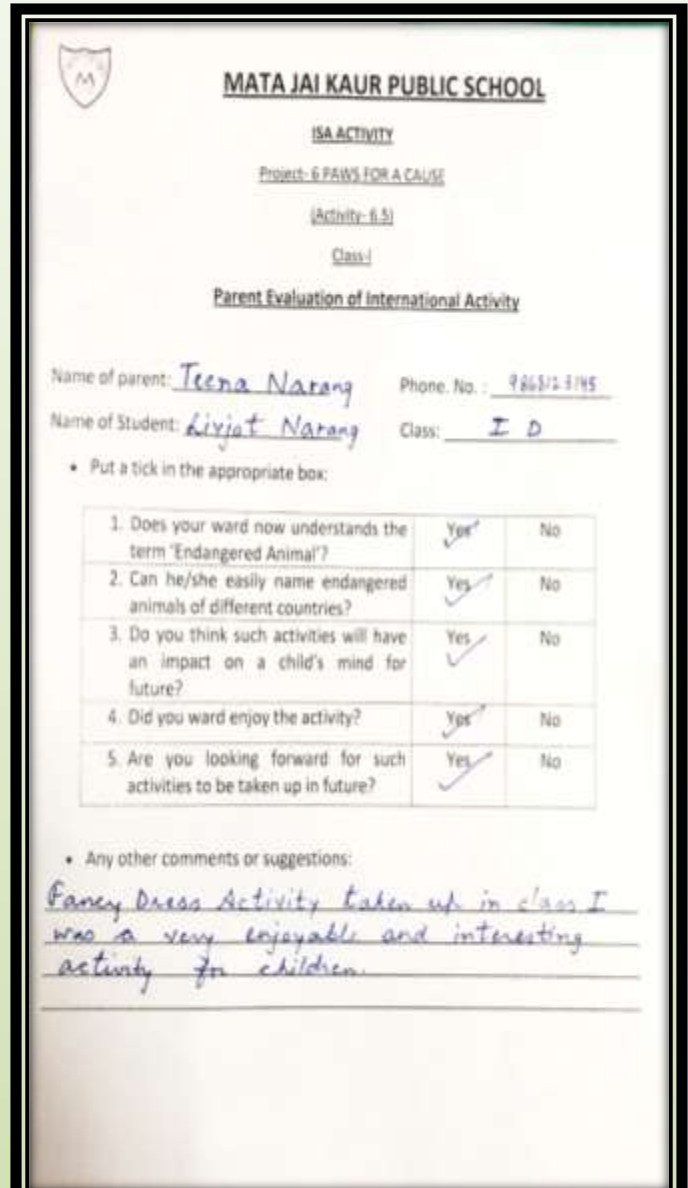 M
MATA JAI KAUR PUBLIC SCHOOL
ISA ACTIVITY
Project- 6 PAWS FOR A CAUSE
(Activity- 6.5)
Class-I
Parent Evaluation of International Activity
Name of parent: Teena Narang Phone. No. :
Name of Student: Livjot Narang Class: I D
• Put a tick in the appropriate box:
1. Does your ward now understands the Yes No
term 'Endangered Animal'?
2. Can he/she easily name endangered Yes No
animals of different countries?
3. Do you think such activities will have Yes No
an impact on a child's mind for
future?
4. Did you ward enjoy the activity? Yes No
5. Are you looking forward for such Yes No
activities to be taken up in future?
• Any other comments or suggestions:
Fancy Dress Activity taken up in class I
was a very enjoyable and interesting
activity for children.